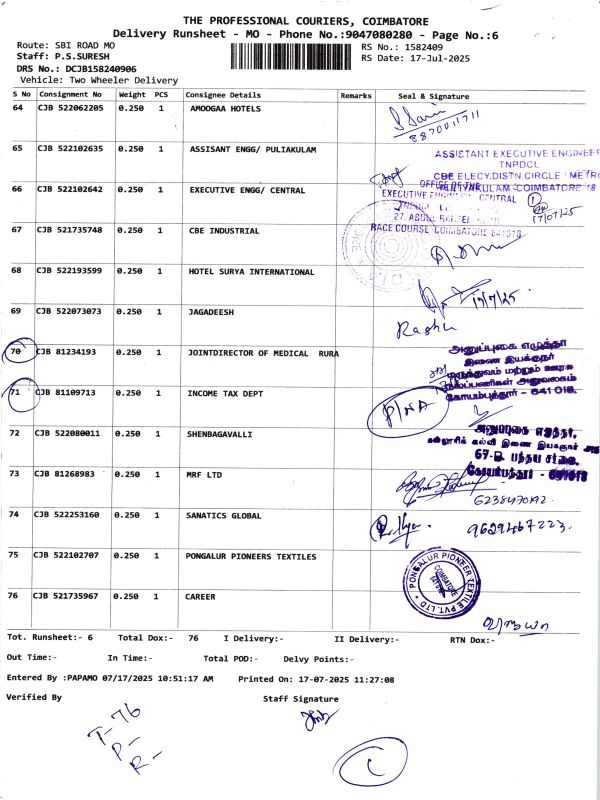 THE PROFESSIONAL COURIERS, COIMBATORE
Delivery Runsheet - MO - Phone No.:9047080280 - Page No.:6
Route: SBI ROAD MO
RS No.: 1582409
Staff: P.S.SURESH
RS Date: 17-Jul-2025
DRS No.: DCJB158240906
Vehicle: Two Wheeler Delivery
S No Consignment No Weight PCS Consignee Details Remarks Seal & Signature
64 CJB 522062205 0.250 1 AMOOGAA HOTELS
8870011711
65 CJB 522102635 0.250 1 ASSISANT ENGG/ PULIAKULAM
ASSISTANT EXECUTIVE ENGINEER
TNPDCL
CBE ELECY.DISTN.CIRCLE / METRO
PULIYAKULAM, COIMBATORE
66 CJB 522102642 0.250 1 EXECUTIVE ENGG/ CENTRAL
OFFICE OF THE
EXECUTIVE ENGINEER, CENTRAL
1
17/07/25
RACE COURSE, COIMBATORE 641018
67 CJB 521735748 0.250 1 CBE INDUSTRIAL
68 CJB 522193599 0.250 1 HOTEL SURYA INTERNATIONAL
17/7/25
69 CJB 522073073 0.250 1 JAGADEESH
70 CJB 81234193 0.250 1 JOINTDIRECTOR OF MEDICAL RURA
அனுப்புகை எழுத்தர்
இணை இயக்குநர்
மருத்துவம் மற்றும் ஊரக
நலப்பணிகள் அலுவலகம்
கோயம்புத்தூர் - 641 018.
71 CJB 81109713 0.250 1 INCOME TAX DEPT
P/NA
72 CJB 522080011 0.250 1 SHENBAGAVALLI
அனுப்புகை எழுத்தர்,
கல்லூரிக் கல்வி இணை இயக்குநர்
67-B, பந்தய சாலை,
கோயம்புத்தூர் - 641018
73 CJB 81268983 0.250 1 MRF LTD
6238470192
74 CJB 522253160 0.250 1 SANATICS GLOBAL
9629467223
75 CJB 522102707 0.250 1 PONGALUR PIONEERS TEXTILES
PONGALUR PIONEER TEXTILE PVT. LTD
COIMBATORE
76 CJB 521735967 0.250 1 CAREER
Tot. Runsheet:- 6 Total Dox:- 76 I Delivery:- II Delivery:- RTN Dox:-
Out Time:- In Time:- Total POD:- Delvy Points:-
Entered By :PAPAMO 07/17/2025 10:51:17 AM Printed On: 17-07-2025 11:27:08
Verified By Staff Signature
T-76
P-
R-